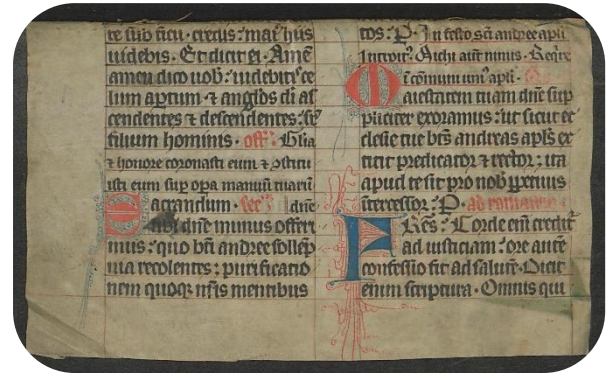 re sub ficu · credis : mai⁹ hiis
uidebis · Et dicit ei · Amē
amen dico uob̄ : uidebitis ce
lum aꝑtum · ⁊ angl̄os d̄i as
cendentes ⁊ descendentes : s̄r
filium hominis · off̄ · Gl̄ia
⁊ honore coronasti eum ⁊ ꝯstitu
isti eum sup̄ oꝑa manuū tuarū
Sacrandum · dn̄e
tibi dn̄e munus offeri
mus : quo bt̄i andree sollēp
nia recolentes : purificatio
nem quoqꝫ nr̄is mentibus
cos : P · In festo sc̄i andree apl̄i
Introit⁹ · Michi aut̄ nimis · Reqͥre
ī cōmuni uni⁹ apl̄i ·
Maiestatem tuam dn̄e sup
pliciter exoramus : ut sicut ec
clesie tue bt̄s andreas apl̄s ex
titit predicator ⁊ rector : ita
apud te sit pro nob̄ ꝑpetuus
ītercessor : P · ad romanos
FRēs : Corde eni credit͛
ad iusticiam : ore autē
confessio fit ad salutē · Dicit
enim scriptura · Omnis qui